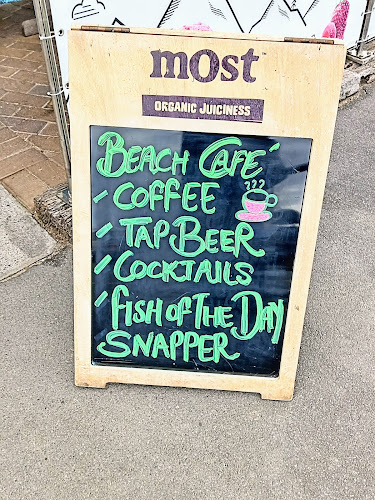 most
ORGANIC JUICINESS
BEACH CAFÉ
- COFFEE
- TAP BEER
- COCKTAILS
- FISH OF THE DAY
SNAPPER